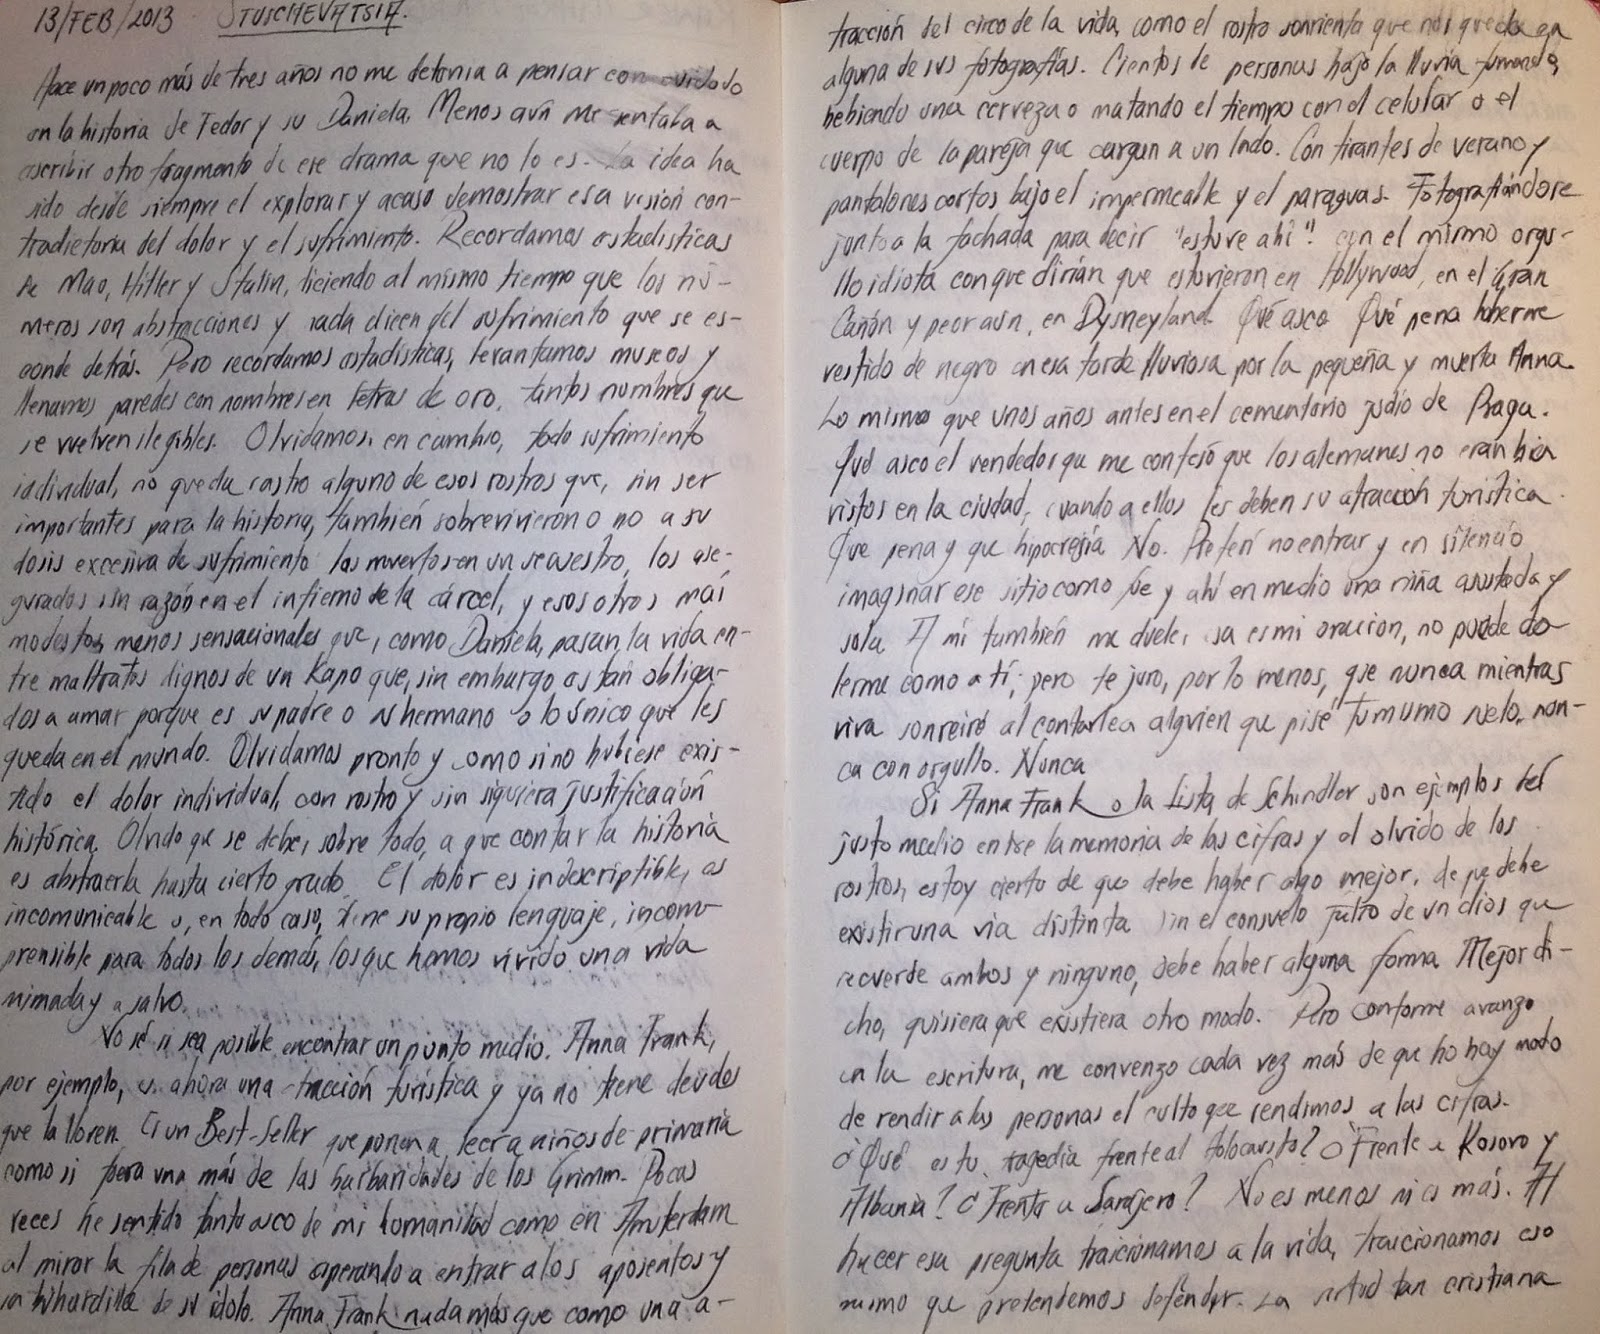 13/FEB/2013 STUSCHEVATSIA.
Hace un poco más de tres años no me detenia a pensar con cuidado
en la historia de Fedor y su Daniela. Menos aún me sentaba a
escribir otro fragmento de ese drama que no lo es. La idea ha
sido desde siempre el explorar y acaso demostrar esa visión con-
tradictoria del dolor y el sufrimiento. Recordamos estadisticas
de Mao, Hitler y Stalin, diciendo al mismo tiempo que los nú-
meros son abstracciones y nada dicen del sufrimiento que se es-
conde detrás. Pero recordamos estadísticas, levantamos museos y
llenamos paredes con nombres en letras de oro, tantos nombres que
se vuelven ilegibles. Olvidamos, en cambio, todo sufrimiento
individual, no queda rastro alguno de esos rostros que, sin ser
importantes para la historia, también sobrevivieron o no a su
dosis excesiva de sufrimiento: los muertos en un secuestro, los ase-
gurados sin razón en el infierno de la cárcel, y esos otros más
modestos, menos sensacionales que, como Daniela, pasan la vida en-
tre maltratos dignos de un Kapo que, sin embargo están obliga-
dos a amar porque es su padre o su hermano o lo único que les
queda en el mundo. Olvidamos pronto y como si no hubiese exis-
tido el dolor individual, con rostro y sin siquiera justificación
histórica. Olvido que se debe, sobre todo, a que contar la historia
es abstraerla hasta cierto grado. El dolor es indescriptible, es
incomunicable o, en todo caso, tiene su propio lenguaje, incom-
prensible para todos los demás, los que hemos vivido una vida
mimada y a salvo.
No sé si sea posible encontrar un punto medio. Anna Frank,
por ejemplo, es ahora una tracción turística y ya no tiene deudos
que la lloren. Es un Best-Seller que ponen a leer a niños de primaria
como si fuera una más de las barbaridades de los Grimm. Pocas
veces he sentido tanto asco de mi humanidad como en Amsterdam
al mirar la fila de personas esperando a entrar a los aposentos y
la buhardilla de su ídolo. Anna Frank nada más que como una a-
tracción del circo de la vida, como el rostro sonriente que nos queda en
alguna de sus fotografías. Cientos de personas bajo la lluvia fumando,
bebiendo una cerveza o matando el tiempo con el celular o el
cuerpo de la pareja que cargan a un lado. Con tirantes de verano y
pantalones cortos bajo el impermeable y el paraguas. Fotografiándose
junto a la fachada para decir "estuve ahí". con el mismo orgu-
llo idiota con que dirían que estuvieron en Hollywood, en el Gran
Cañón y peor aún, en Dysneyland. Qué asco. Qué pena haberme
vestido de negro en esa tarde lluviosa por la pequeña y muerta Anna.
Lo mismo que unos años antes en el cementerio judío de Praga.
Qué asco el vendedor que me confesó que los alemanes no eran bien
vistos en la ciudad, cuando a ellos les deben su atracción turística.
Que pena y que hipocresía. No. Preferí no entrar y en silencio
imaginar ese sitio como fue y ahí en medio una niña asustada y
sola. A mí también me duele, esa es mi oración, no puede do-
lerme como a tí, pero te juro, por lo menos, que nunca mientras
viva sonreiré al contarle a alguien que pisé tu mismo suelo, nun-
ca con orgullo. Nunca
Si Anna Frank o la Lista de Schindler son ejemplos del
justo medio entre la memoria de las cifras y el olvido de los
rostros, estoy cierto de que debe haber algo mejor, de que debe
existir una vía distinta. Sin el consuelo fútro de un dios que
recuerde ambos y ninguno, debe haber alguna forma. Mejor di-
cho, quisiera que existiera otro modo. Pero conforme avanzo
en la escritura, me convenzo cada vez más de que no hay modo
de rendir a las personas el culto que rendimos a las cifras.
¿Qué es tu tragedia frente al Holocausto? ¿Frente a Kosovo y
Albania? ¿Frente a Sarajevo? No es menos ni es más. Al
hacer esa pregunta traicionamos a la vida, traicionamos eso
mismo que pretendemos defender. La virtud tan cristiana